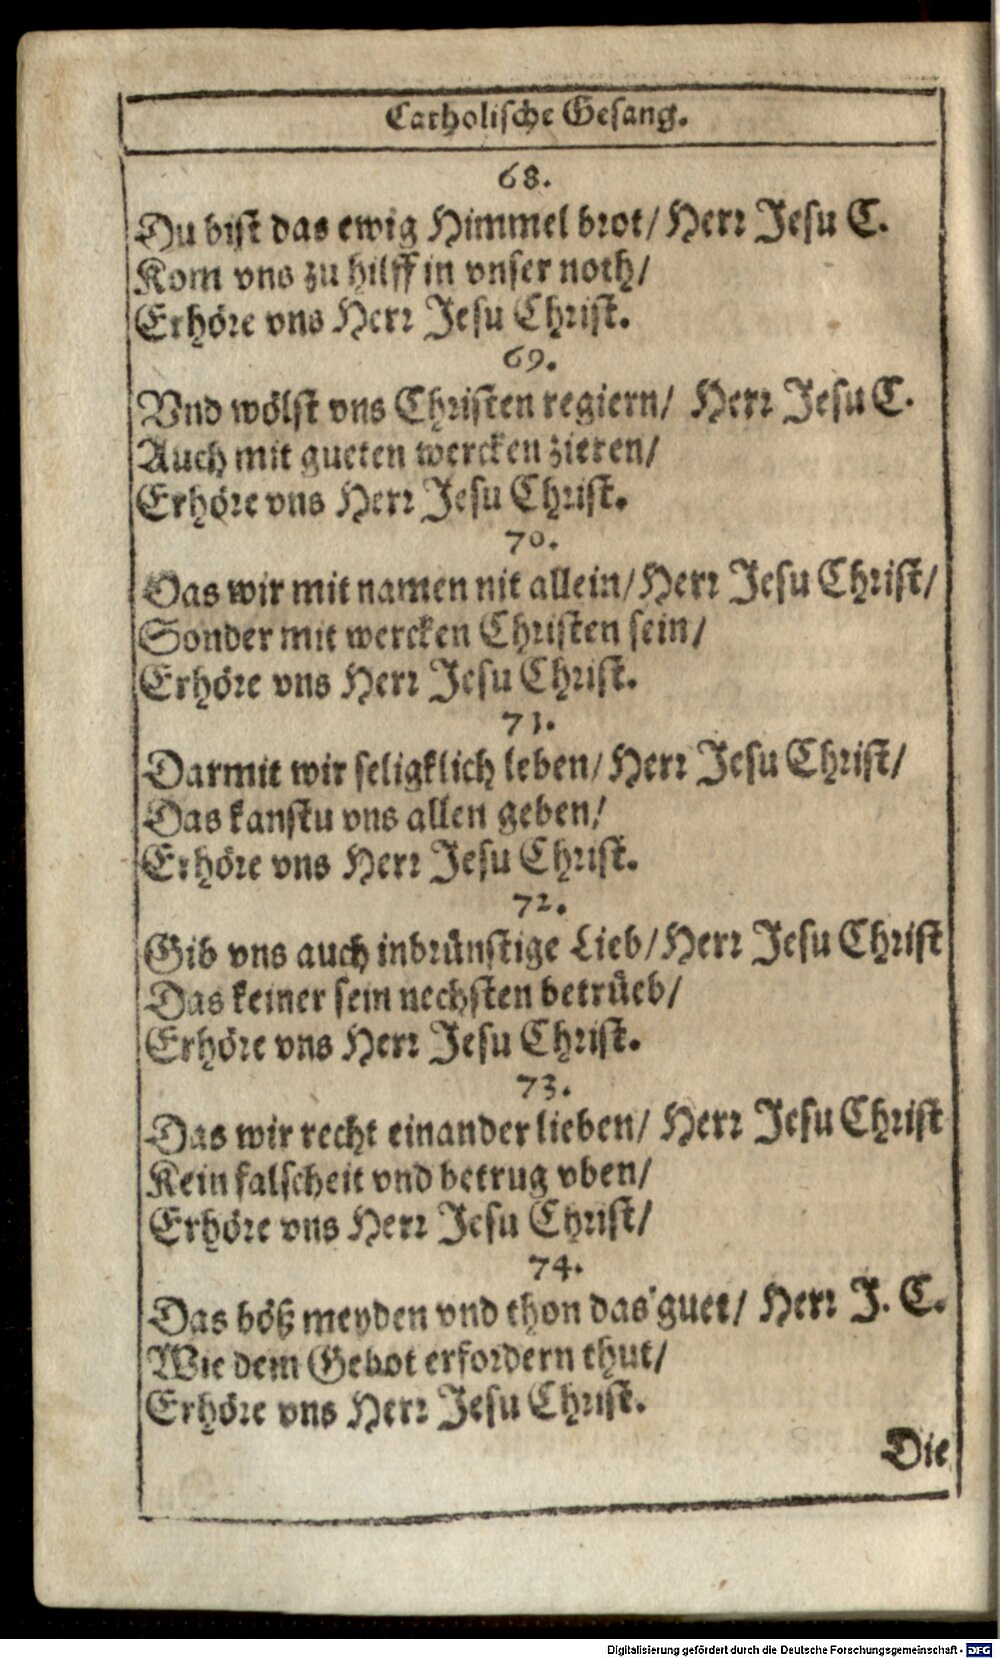 Catholische Gesang.
68.
Du bist das ewig Himmel brot/ Herr Jesu C.
Kom vns zu hilff in vnser noth/
Erhöre vns Herr Jesu Christ.
69.
Vnd wölst vns Christen regiern/ Herr Jesu C.
Auch mit gueten wercken zieren/
Erhöre vns Herr Jesu Christ.
70.
Das wir mit namen nit allein/ Herr Jesu Christ/
Sonder mit wercken Christen sein/
Erhöre vns Herr Jesu Christ.
71.
Darmit wir seligklich leben/ Herr Jesu Christ/
Das kanstu vns allen geben/
Erhöre vns Herr Jesu Christ.
72.
Gib vns auch inbrünstige Lieb/ Herr Jesu Christ
Das keiner sein nechsten betrüeb/
Erhöre vns Herr Jesu Christ.
73.
Das wir recht einander lieben/ Herr Jesu Christ
Kein falscheit vnd betrug vben/
Erhöre vns Herr Jesu Christ/
74.
Das böß meyden vnd thon das guet/ Herr J. C.
Wie dem Gebot erfordern thut/
Erhöre vns Herr Jesu Christ.
Die
Digitalisierung gefördert durch die Deutsche Forschungsgemeinschaft - DFG